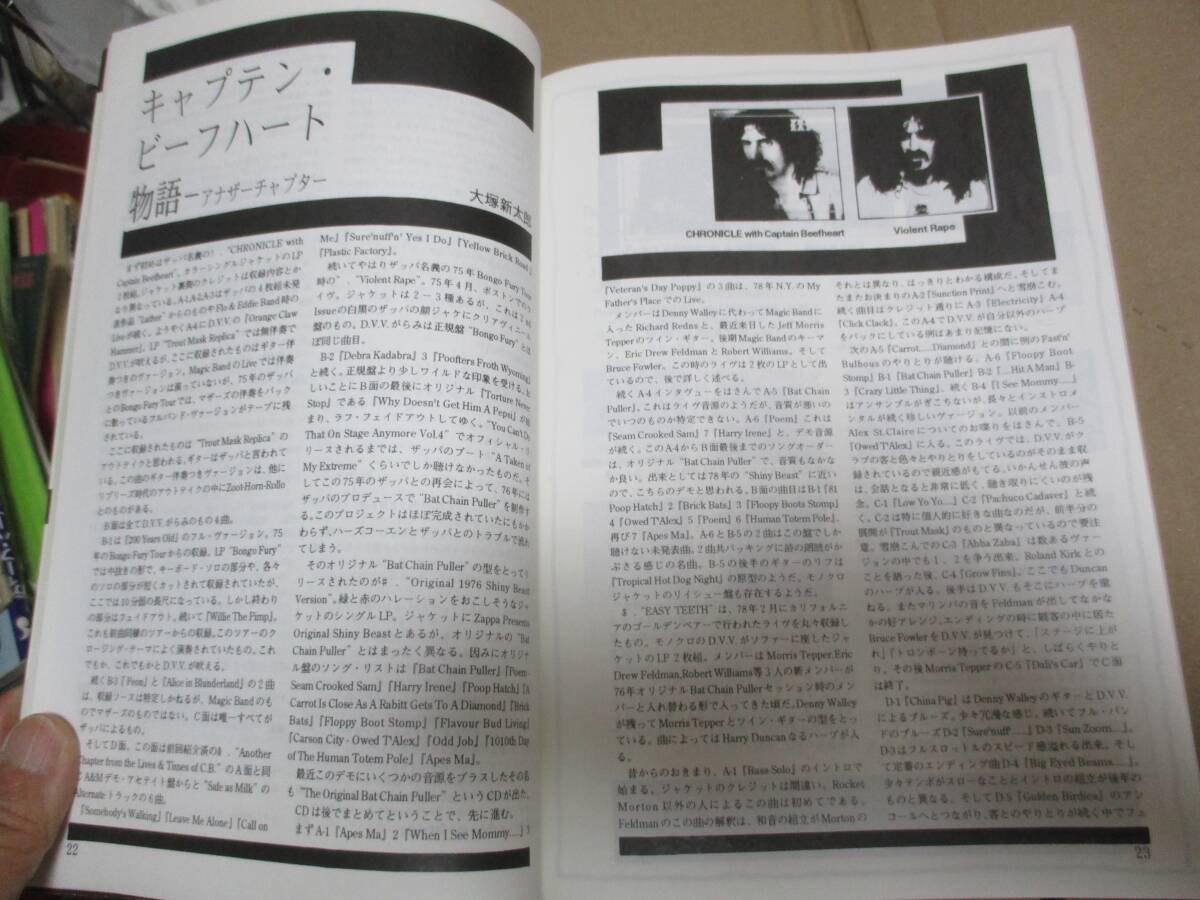 キャプテン・
ビーフハート
物語－アナザーチャプター
大塚新太郎
まず初めはザッパ名義の!．"CHRONICLE with
Captain Beefheart"。カラーシングルジャケットのLP
2枚組。ジャケット裏面のクレジットは収録内容とか
なり異なっている。A-1、A-2、A-3はザッパの4枚組未発
表作品"Läther"からのものやFlo & Eddie Band時の
Liveが続く。ようやくA4にD.V.V.の『Orange Claw
Hammer』。LP "Trout Mask Replica"では無伴奏で
D.V.V.が吠えるが、ここで収録されたものはギター伴
奏つきのヴァージョン。Magic BandのLiveでは伴奏
つきヴァージョンは演っていないが、75年のザッパ
とのBongo Fury Tourでは、マザーズの伴奏をバック
に吠えているフルバンド・ヴァージョンがテープに残
されている。
ここに収録されたものは"Trout Mask Replica"の
アウトテイクと思われる。ギターはザッパと言われて
いる。この曲のギター伴奏つきヴァージョンは、他に
リプリーズ時代のアウトテイクの中にZoot-Horn-Rollo
とのものがある。
B面は全てD.V.V.がらみのもの4曲。
B-1は『200 Years Old』のフル・ヴァージョン。75
年のBongo Fury Tourからの収録。LP "Bongo Fury"
では中抜きの形で、キーボード・ソロの部分や、各々
のソロの部分が短くカットされて収録されていたが、
ここでは10分弱の長尺になっている。しかし終わり
の部分はフェイドアウト。続いて『Willie The Pimp』。
これも前曲同様のツアーからの収録。このツアーのク
ロージング・テーマによく演奏されていたもの。これ
でもか、これでもかとD.V.V.が吠える。
続くB-3『Peon』と『Alice in Blunderland』の2曲
は、収録ソースは特定しかねるが、Magic Bandのも
のでマザーズのものではない。C面は唯一すべてが
ザッパによるもの。
そしてD面。この面は前回紹介済の#．"Another
Chapter from the Lives & Times of C.B."のA面と同
じA&Mデモ・アセテイト盤からと"Safe as Milk"の
Alternateトラックの6曲。
『Somebody's Walking』『Leave Me Alone』『Call on
Me』『Sure'nuff'n' Yes I Do』『Yellow Brick Road』
『Plastic Factory』。
続いてやはりザッパ名義の75年Bongo Fury Tour
時の"．"Violent Rape"。75年4月、ボストンでのラ
イヴ。ジャケットは2－3種あるが、これは2nd
Issueの白黒のザッパの顔ジャケにクリアヴィニール
盤のもの。D.V.V.がらみは正規盤"Bongo Fury"とほ
ぼ同じ曲目。
B-2『Debra Kadabra』3『Poofters Froth Wyoming』
と続く。正規盤より少しワイルドな印象を受ける。と
しいことにB面の最後にオリジナル『Torture Never
Stop』である『Why Doesn't Get Him A Pepsi』が始
まり、ラフ・フェイドアウトしてゆく。"You Can't Do
That On Stage Anymore Vol.4"でオフィシャル・リ
リースされるまでは、ザッパのブート"A Taken of
My Extreme"くらいでしか聴けなかったものだ。そ
してこの75年のザッパとの再会によって、76年には
ザッパのプロデュースで"Bat Chain Puller"を制作す
る。このプロジェクトはほぼ完成されていたにもかか
わらず、ハーズコーエンとザッパとのトラブルで流れ
てしまう。
そのオリジナル"Bat Chain Puller"の型をとってリ
リースされたのが#．"Original 1976 Shiny Beast
Version"。緑と赤のハレーションをおこしそうなジャ
ケットのシングルLP。ジャケットにZappa Presents
Original Shiny Beastとあるが、オリジナルの"Bat
Chain Puller"とはまったく異なる。因みにオリジナ
ル盤のソング・リストは『Bat Chain Puller』『Poem-
Seam Crooked Sam』『Harry Irene』『Poop Hatch』『A
Carrot Is Close As A Rabitt Gets To A Diamond』『Brick
Bats』『Floppy Boot Stomp』『Flavour Bud Living』
『Carson City - Owed T'Alex』『Odd Job』『1010th Day
of The Human Totem Pole』『Apes Ma』。
最近このデモにいくつかの音源をプラスしたその名
も"The Original Bat Chain Puller"というCDが出た。
CDは後でまとめてということで、先に進む。
まずA-1『Apes Ma』2『When I See Mommy....』3
22
CHRONICLE with Captain Beefheart
Violent Rape
『Veteran's Day Poppy』の3曲は、78年N.Y.のMy
Father's PlaceでのLive。
メンバーはDenny Walleyに代わってMagic Bandに
入ったRichard Rednsと、最近来日したJeff Morris
Tepperのツイン・ギター。後期Magic Bandのキーマ
ン、Eric Drew FeldmanとRobert Williams。そして
Bruce Fowler。この時のライヴは2枚のLPとして出
ているので、後で詳しく述べる。
続くA-4インタヴューをはさんでA-5『Bat Chain
Puller』。これはライヴ音源のようだが、音質が悪いの
でいつのものか特定できない。A-6『Poem』これは
『Seam Crooked Sam』7『Harry Irene』と、デモ音源
が続く。このA-4からB面最後までのソングオーダー
は、オリジナル"Bat Chain Puller"で、音質もなかな
か良い。出来としては78年の"Shiny Beast"に近い
ので、こちらのデモと思われる。B面の曲目はB-1『81
Poop Hatch』2『Brick Bats』3『Floppy Boots Stomp』
4『Owed T'Alex』5『Poem』6『Human Totem Pole』、
再び7『Apes Ma』。A-6とB-5の2曲はこの盤でしか
聴けない未発表曲。2曲共バッキングに詩の朗読がか
ぶさる感じの名曲。B-5の後半のギターのリフは
『Tropical Hot Dog Night』の原型のようだ。モノクロ
ジャケットのリイシュー盤も存在するようだ。
$．"EASY TEETH"は、78年2月にカリフォルニ
アのゴールデンベアーで行われたライヴを丸々収録し
たもの。モノクロのD.V.V.がソファーに座したジャ
ケットのLP 2枚組。メンバーはMorris Tepper,Eric
Drew Feldman,Robert Williams等3人の新メンバーが
76年オリジナルBat Chain Pullerセッション時のメン
バーと入れ替わる形で入って来た頃だ。Denny Walley
が残ってMorris Tepperとツイン・ギターの型をとっ
ている。曲によってはHarry Duncanなるハープが入
る。
昔からのおきまり、A-1『Bass Solo』のイントロで
始まる。ジャケットのクレジットは間違い。Rocket
Morton以外の人によるこの曲は初めてである。
Feldmanのこの曲の解釈は、和音の組立がMortonの
それとは異なり、はっきりとわかる構成だ。そしてま
たまたお決まりのA-2『Sunction Print』へと雪崩こむ。
続く曲目はクレジット通りにA-3『Electricity』A-4
『Click Clack』。このA4でD.V.V.が自分以外のハープ
をバックにしている例はあまり記憶にない。
次のA-5『Carrot.....Diamond』との間に例のFast'n'
Bulhousのやりとりが聴ける。A-6『Floopy Boot
Stomp』B-1『Bat Chain Puller』B-2『...Hit A Man』B-
3『Crazy Little Thing』、続くB-4『I See Mommy....』
はアンサンブルがぎこちないが、長々とインストロメ
ンタルが続く珍しいヴァージョン。以前のメンバー
Alex St.Claireについてのお喋りをはさんで、B-5
『Owed T'Alex』に入る。このライヴでは、D.V.V.がク
ラブの客と色々とやりとりをしているのがそのまま収
録されているので親近感がもてる。いかんせん彼の声
は、会話となると非常に低く、聴き取りにくいのが残
念。C-1『Low Yo Yo....』C-2『Pachuco Cadaver』と続
く。C-2は特に個人的に好きな曲なのだが、前半分の
展開が『Trout Mask』のものと異なっているので要注
意。雪崩こんでのC-3『Abba Zaba』は数あるヴァー
ジョンの中でも1、2を争う出来。Roland Kirkとの
ことを喋った後、C-4『Grow Fins』。ここでもDuncan
のハープが入る。後半はD.V.V.もそこにハープを重
ねる。またマリンバの音をFeldmanが出してなかな
かの好アレンジ。エンディングの時に観客の中に居た
Bruce FowlerをD.V.V.が見つけて、『ステージに上が
れ』『トロンボーン持ってるか』と、しばらくやりと
り。その後Morris TepperのC-5『Dali's Car』でC面
は終了。
D-1『China Pig』はDenny WalleyのギターとD.V.V.
によるブルーズ。少々冗漫な感じ。続いてフル・バン
ドのブルーズD-2『Sure'nuff.....』D-3『Sun Zoom....』
D-3はフルスロットルのスピード感溢れる出来。そし
て定番のエンディング曲D-4『Big Eyed Beams....』
少々テンポがスローなこととイントロの組立が後年の
ものと異なる。そしてD-5『Golden Birdies』のアン
コールへとつながり、客とのやりとりが続く中でフェ
23